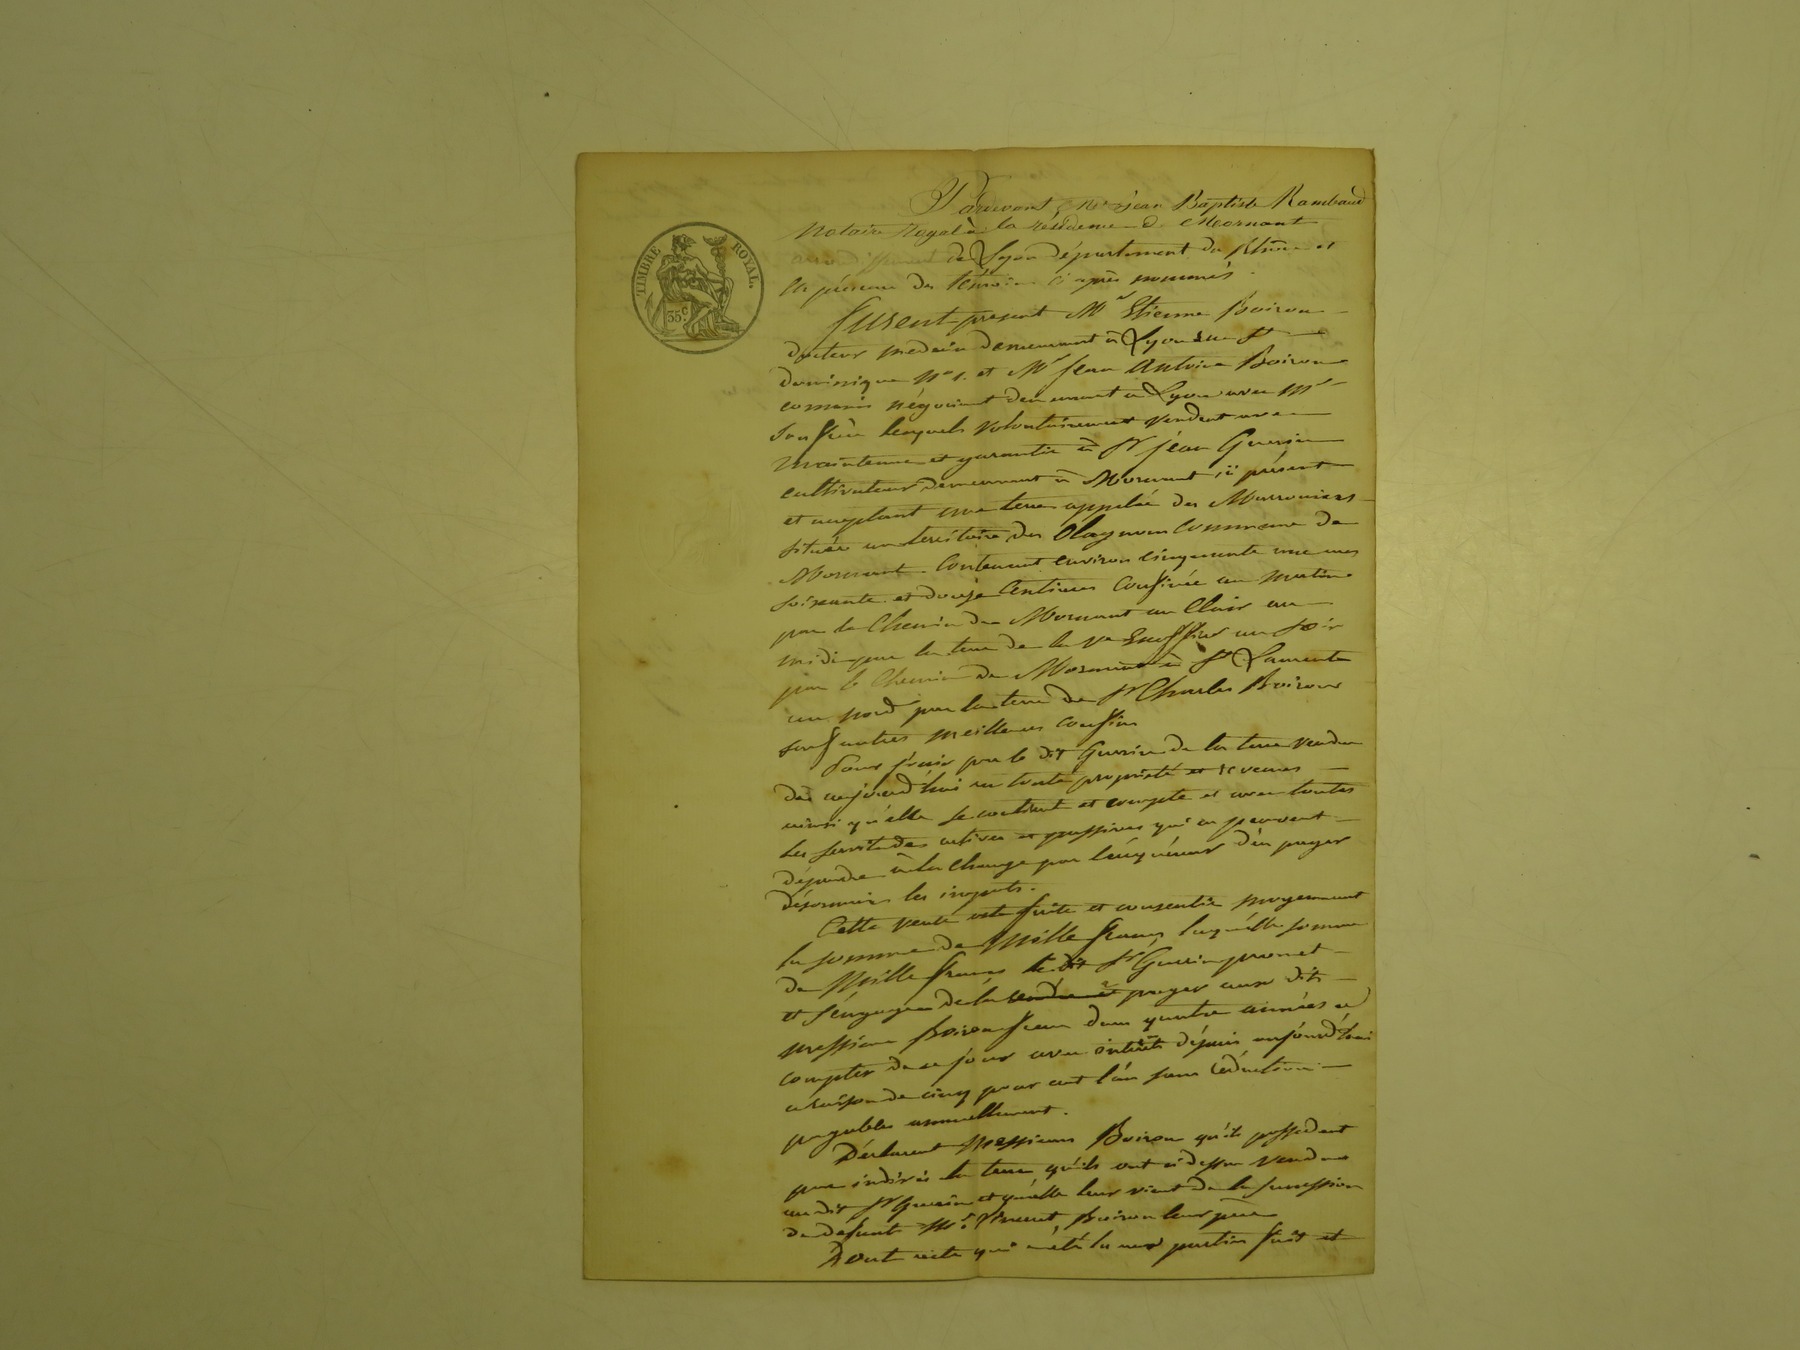 TIMBRE ROYAL.
35 c.
Pardevant Me jean Baptiste Rambaud
Notaire Royal à la résidence de Mornant
arrondissement de Lyon département du Rhône et
en présence des témoins ci après nommés.
furent present Mr Etienne Boiron
docteur medecin demeurant à Lyon rue St
dominique No 1. et Mr Jean Antoine Boiron
commis négociant demeurant à Lyon avec Mr
Son frère lesquels volontairement vendent avec
maintenue et garantie à Sr jéan Guerin
cultivateur demeurant à Mornant ici présent
et acceptant une terre appelée des Marroniers
située au territoire du Olagnon Commune de
Mornant. Contenant environ cinquante une ares
soixante et douze Centiares Confinée au matin
par le Chemin de Mornant au Clair au
midi par la terre de la Ve au soir
par le Chemin de Mornant à St Laurent
au nord par la terre de Sr Charles Boiron
sauf autres meilleurs confins
Pour jouir par le dit Guerin de la terre vendue
dès aujourd'hui en toute propriété et revenus
ainsi qu'elle se contient et compte et avec toutes
les servitudes actives et passives qui en peuvent
dépendre à la charge par l'acquéreur d'en payer
désormais les impots.
Cette vente est faite et consentie moyennant
la somme de Mille francs laquélle somme
de Mille francs le dit Sr Guerin promet
et s'engage de la payer aux dits
messieurs Boiron frères dans quatre années a
compter de ce jour avec intérêts dépuis aujourd'hui
a raison de cinq pour cent l'an sans réduction
payables annuellement.
Déclarent Messieurs Boiron qu'ils possedent
par indivis la terre qu'ils ont ci dessus vendue
au dit Sr Guerin et qu'elle leur vient de la succession
de défunt Mr. Vincent Boiron leur père
Dont acte qui a été lu aux parties fait et